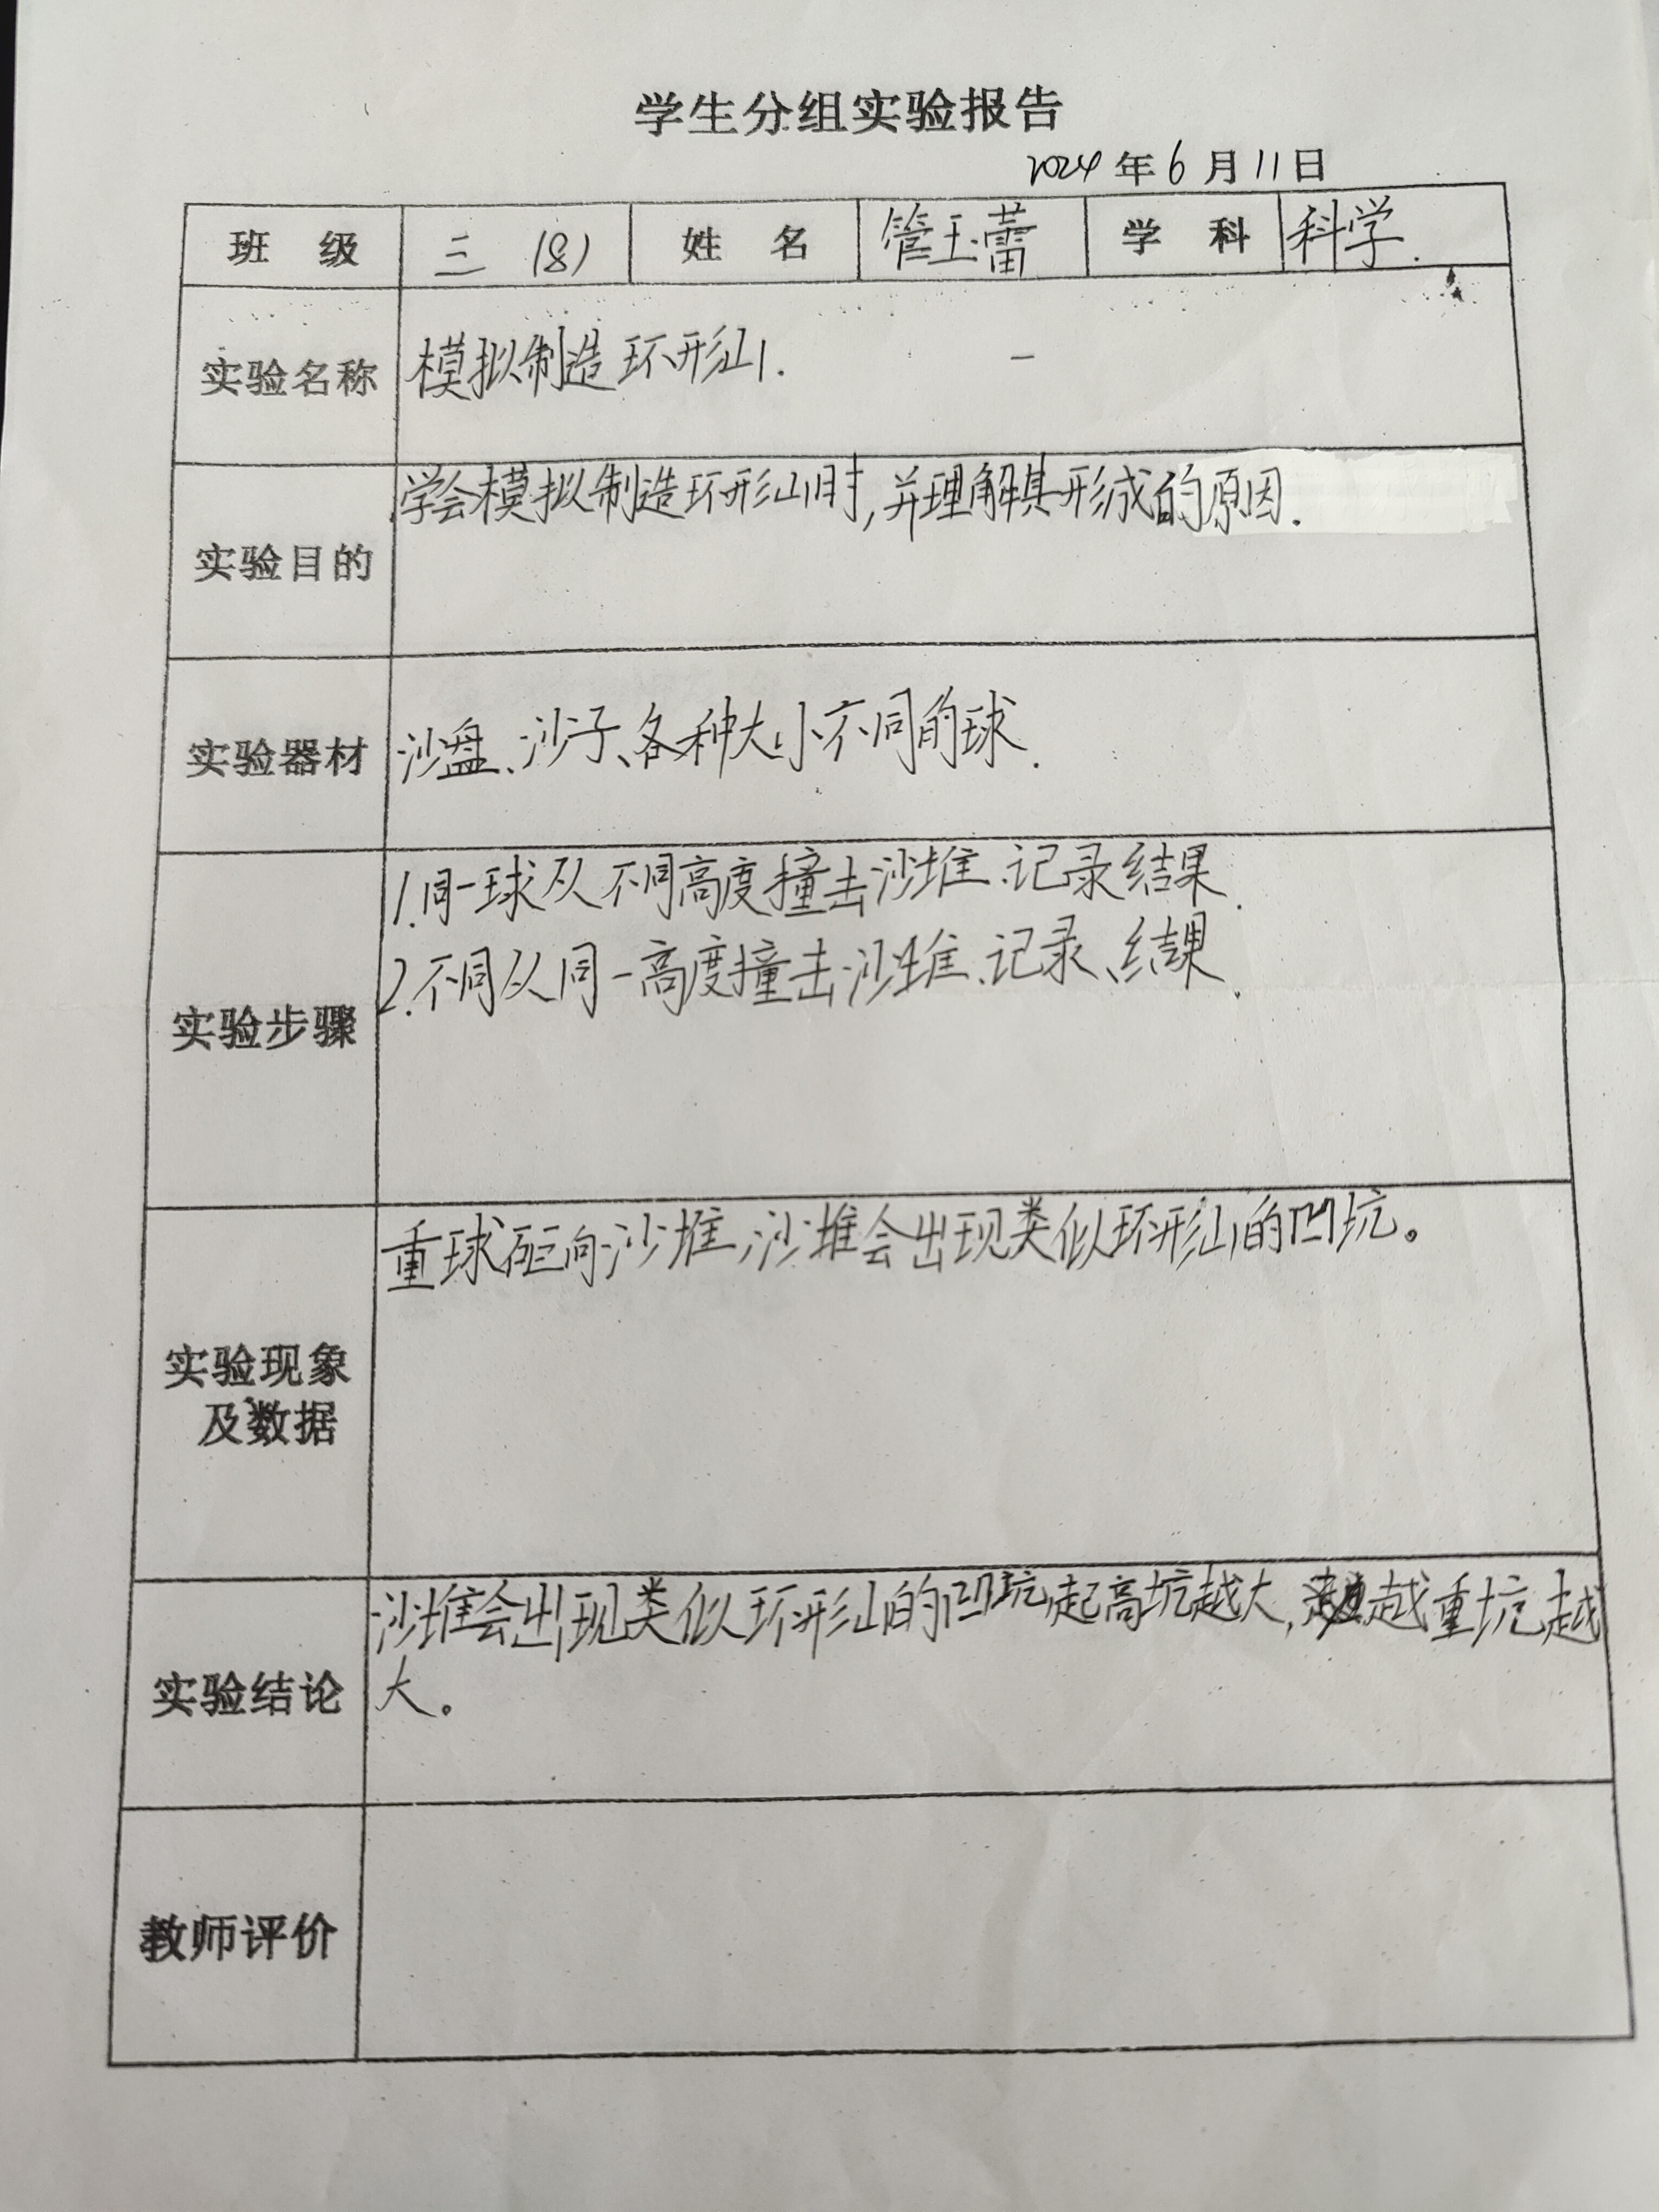 学生分组实验报告
2024年6月11日
班 级 三 (8) 姓 名 管玉蕾 学 科 科学.
实验名称 模拟制造环形山.
实验目的 学会模拟制造环形山时,并理解其形成的原因.
实验器材 沙盘、沙子、各种大小不同的球.
实验步骤
1.同一球从不同高度撞击沙堆、记录结果.
2.不同从同一高度撞击沙堆、记录、结果.
实验现象
及数据
重球砸向沙堆,沙堆会出现类似环形山的凹坑。
实验结论
沙堆会出现类似环形山的凹坑,起高坑越大,越重坑越
大。
教师评价